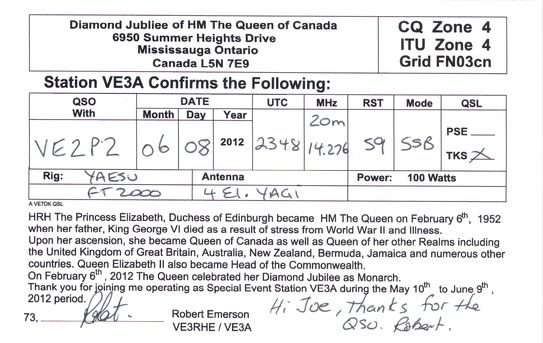 Diamond Jubliee of HM The Queen of Canada
6950 Summer Heights Drive
Mississauga Ontario
Canada L5N 7E9
CQ Zone 4
ITU Zone 4
Grid FN03cn
Station VE3A Confirms the Following:
QSO With DATE UTC MHz RST Mode QSL
Month Day Year
VE2PZ 06 08 2012 2348 20m 14.276 59 SSB PSE
TKS X
Rig: YAESU Antenna Power: 100 Watts
FT2000 4 El. YAGI
A VE7DK QSL
HRH The Princess Elizabeth, Duchess of Edinburgh became HM The Queen on February 6th, 1952
when her father, King George VI died as a result of stress from World War II and Illness.
Upon her ascension, she became Queen of Canada as well as Queen of her other Realms including
the United Kingdom of Great Britain, Australia, New Zealand, Bermuda, Jamaica and numerous other
countries. Queen Elizabeth II also became Head of the Commonwealth.
On February 6th, 2012 The Queen celebrated her Diamond Jubilee as Monarch.
Thank you for joining me operating as Special Event Station VE3A during the May 10th to June 9th,
2012 period.
Hi Joe, Thanks for the
QSO. Robert.
73, Robert. Robert Emerson
VE3RHE / VE3A